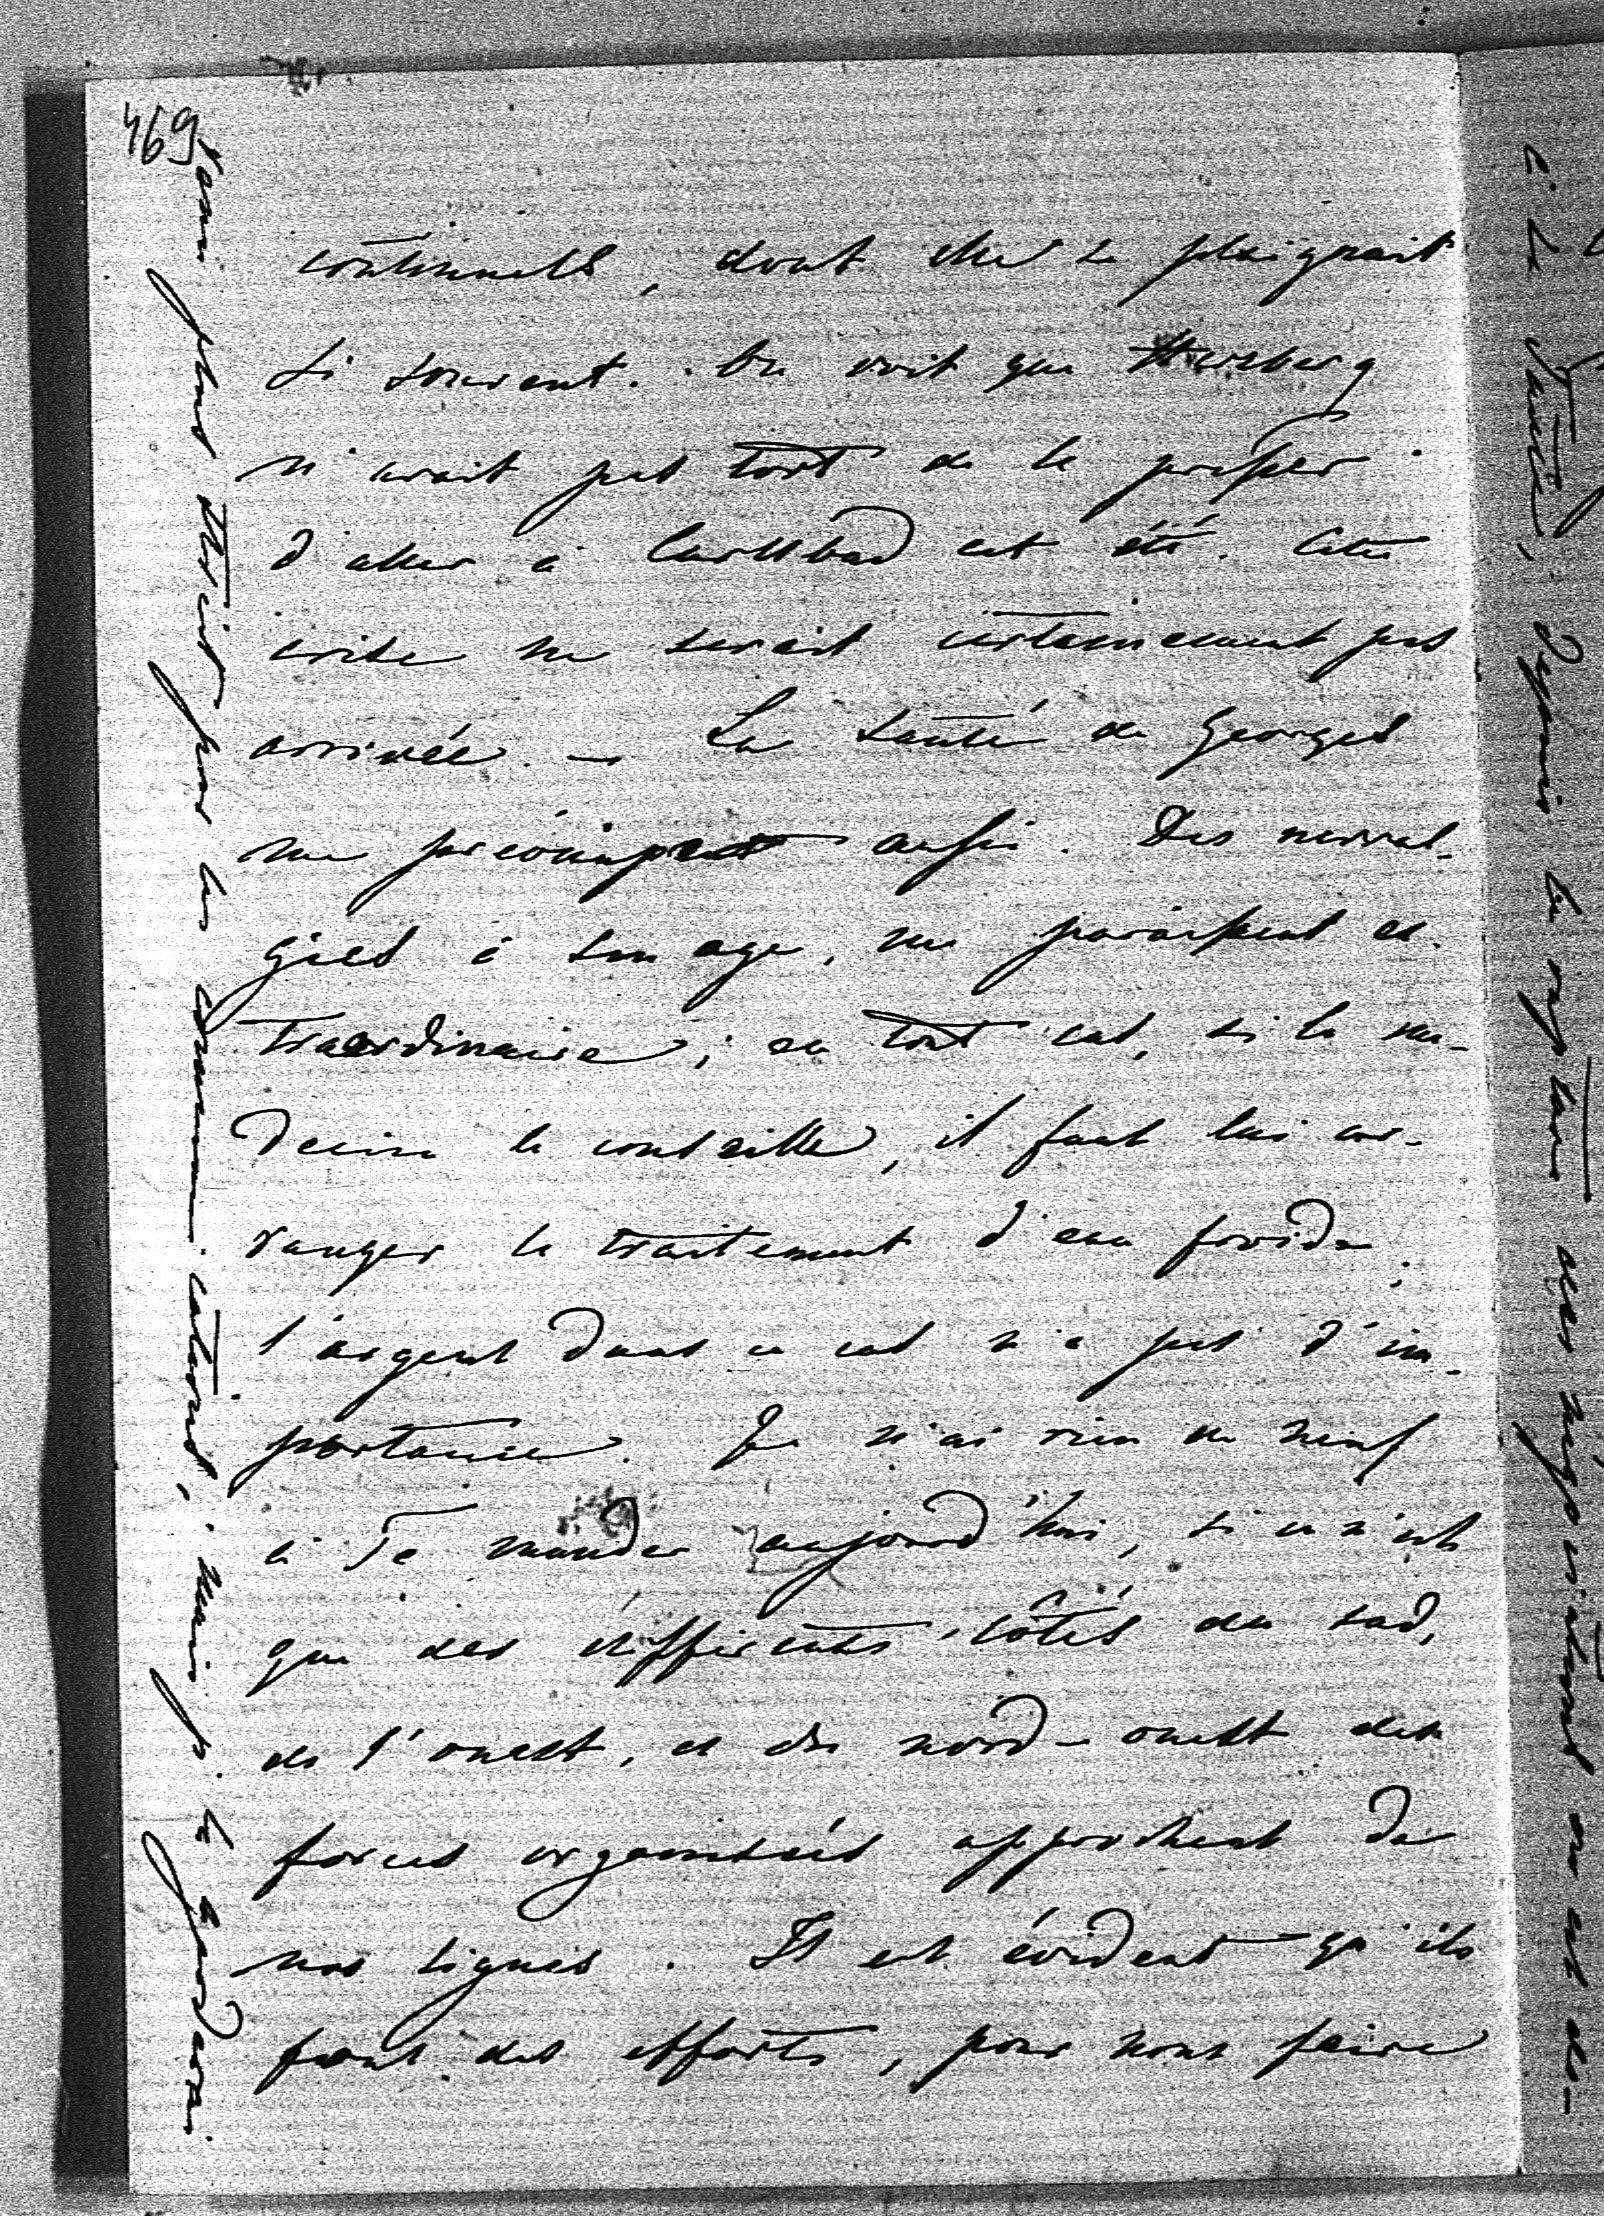 469
continuels, dont elle se plaignait
si souvent. On voit que Hursberg
n'avait pas tort de la presser
d'aller à Carlsbad cet été. Cette
crise ne serait certainement pas
arrivée. — La santé de Georges
me préoccupent aussi. Des nevral-
gies à son age, me paraissent ex-
traordinaire; en tout cas, si la me-
decine le conseille, il faut lui ar-
ranger le traitement d'eau froide;
l'argent dans ce cas n'a pas d'im-
portance. Je n'ai rien de neuf
à Te mander aujourd'hui, si ce n'est
que des différents côtés du sud,
de l'ouest, et du nord-ouest des
forces organisées approchent de
nos lignes. Il est évident qu'ils
font des efforts, pour nous faire
plus strict par les communications, mais p. le garderai.